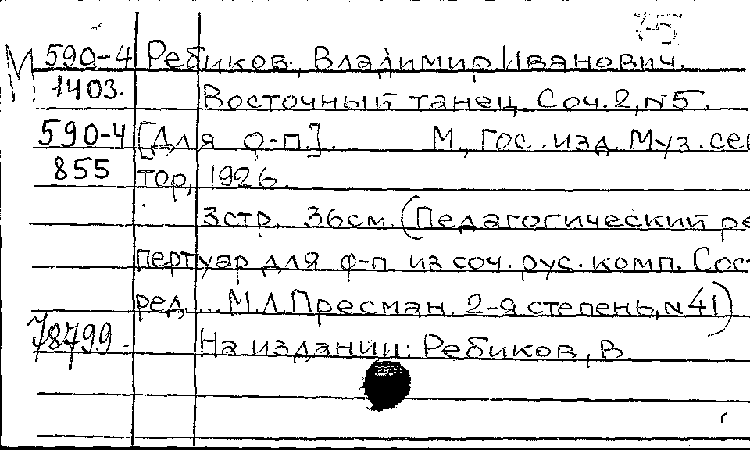 М 590-4 Ребиков, Владимир Иванович.
1403. Восточный танец. Соч.2, №5.
590-4 [Для ф-п.]. М., Гос. изд. Муз. сек
855 тор, 1926.
3стр. 36см. (Педагогический ре
пертуар для ф-п. из соч. рус. комп. Сост
ред. ... М.Л. Пресман. 2-я степень, №41)
78499. На издании: Ребиков, В.